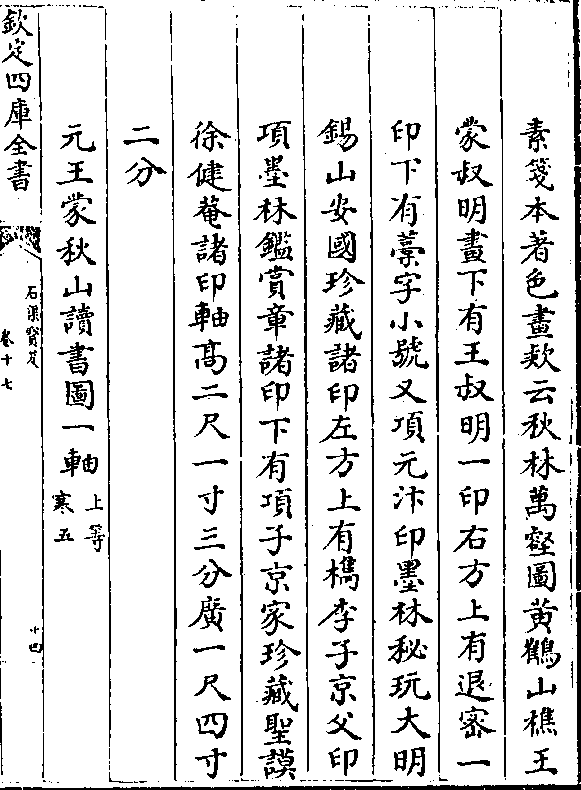 素箋本著色畫欵云秋林萬壑圖黄鶴山樵王
蒙叔明畫下有王叔明一印右方上有退密一
印下有藁字小號又項元汴印墨林秘玩大明
錫山安國珍藏諸印左方上有檇李子京父印
項墨林鑑賞章諸印下有項子京家珍藏聖謨
徐健菴諸印軸髙二尺一寸三分廣一尺四寸
二分
元王蒙秋山讀書圖一軸上等
寒五
欽定四庫全書
石渠寳笈
卷十七
十四